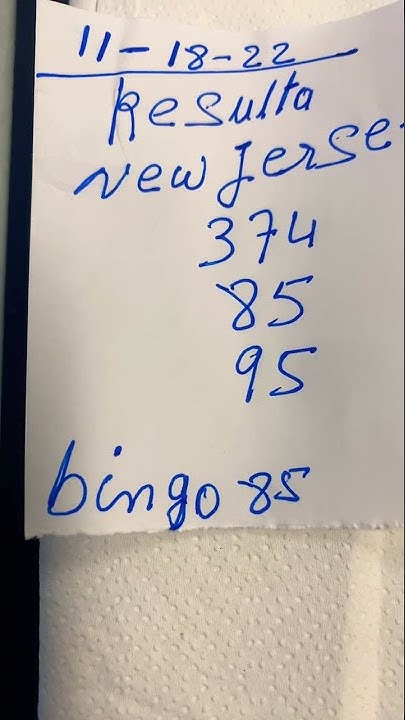 11-18-22
Resulta
New Jerse
374
85
95
bingo 85